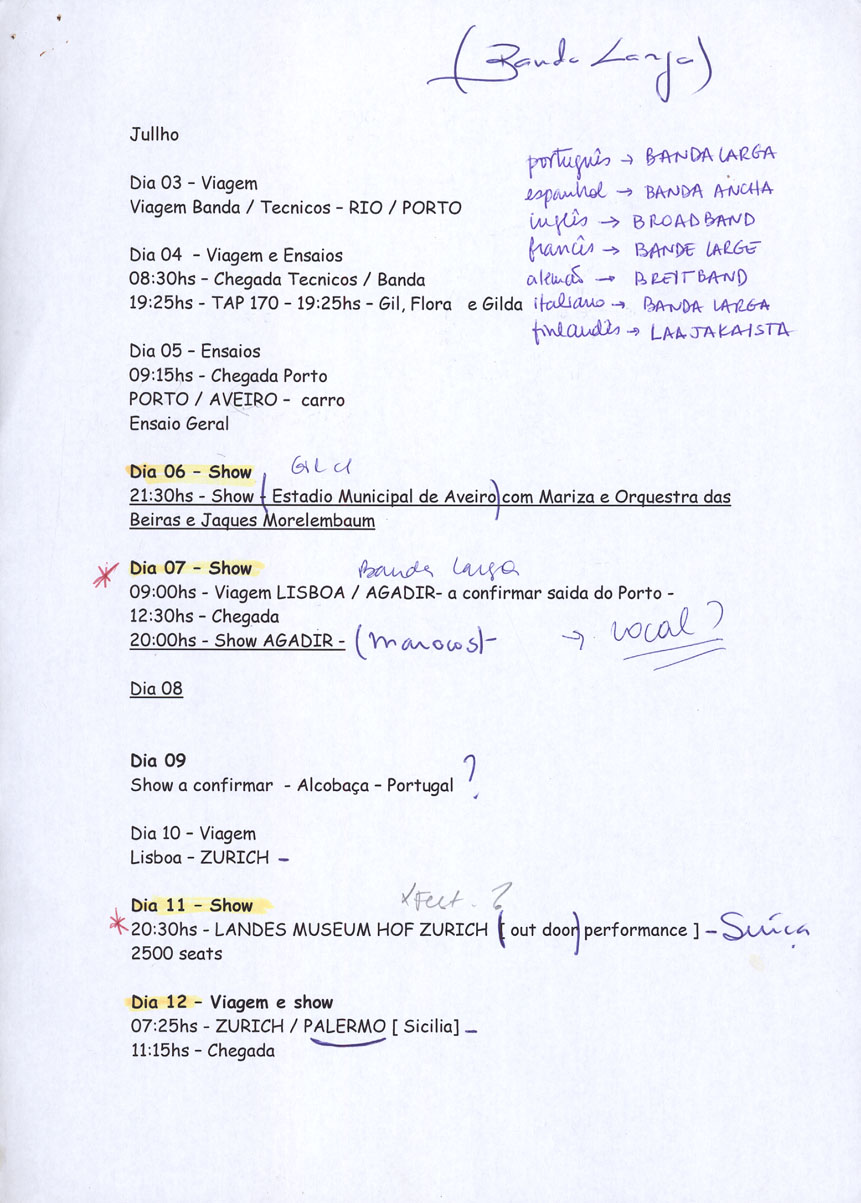 (Banda Larga)
Jullho
português → BANDA LARGA
Dia 03 – Viagem
espanhol → BANDA ANCHA
Viagem Banda / Tecnicos – RIO / PORTO
inglês → BROADBAND
francês → BANDE LARGE
Dia 04 – Viagem e Ensaios
alemão → BREITBAND
08:30hs - Chegada Tecnicos / Banda
19:25hs - TAP 170 – 19:25hs – Gil, Flora e Gilda
italiano → BANDA LARGA
finlandês → LAAJAKAISTA
Dia 05 – Ensaios
09:15hs - Chegada Porto
PORTO / AVEIRO - carro
Ensaio Geral
Dia 06 – Show
21:30hs - Show ( Estadio Municipal de Aveiro) com Mariza e Orquestra das
Beiras e Jaques Morelembaum
* Dia 07 – Show Banda Larga
09:00hs - Viagem LISBOA / AGADIR- a confirmar saida do Porto -
12:30hs – Chegada
20:00hs - Show AGADIR - (Marocos)- → vocal?
Dia 08
Dia 09
Show a confirmar - Alcobaça – Portugal ?
Dia 10 – Viagem
Lisboa – ZURICH –
Dia 11 – Show ?
* 20:30hs - LANDES MUSEUM HOF ZURICH [ out door) performance ] – Suíça
2500 seats
Dia 12 – Viagem e show
07:25hs - ZURICH / PALERMO [ Sicilia] –
11:15hs – Chegada